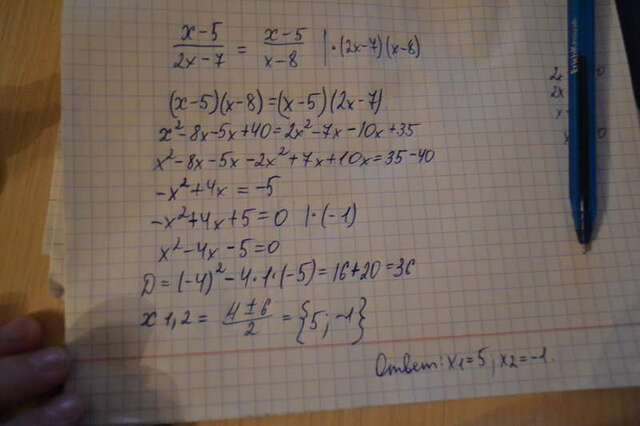 x-5/2x-7 = x-5/x-8 |·(2x-7)(x-8)
(x-5)(x-8)=(x-5)(2x-7)
x²-8x-5x+40=2x²-7x-10x+35
x²-8x-5x-2x²+7x+10x=35-40
-x²+4x=-5
-x²+4x+5=0 |·(-1)
x²-4x-5=0
D=(-4)²-4·1·(-5)=16+20=36
x1,2=4±6/2={5;-1}
Ответ: x₁=5; x₂=-1.